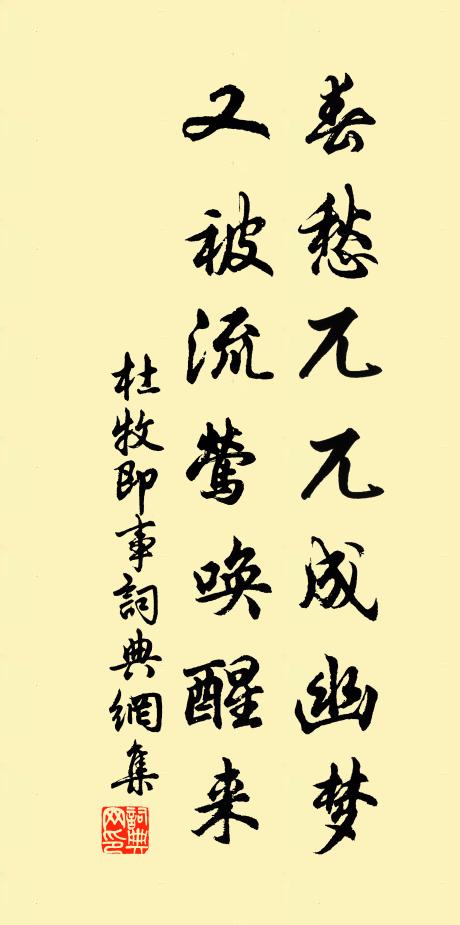 春愁兀兀成幽梦
又被流莺唤醒来
杜牧即事词典網集
詞典网印